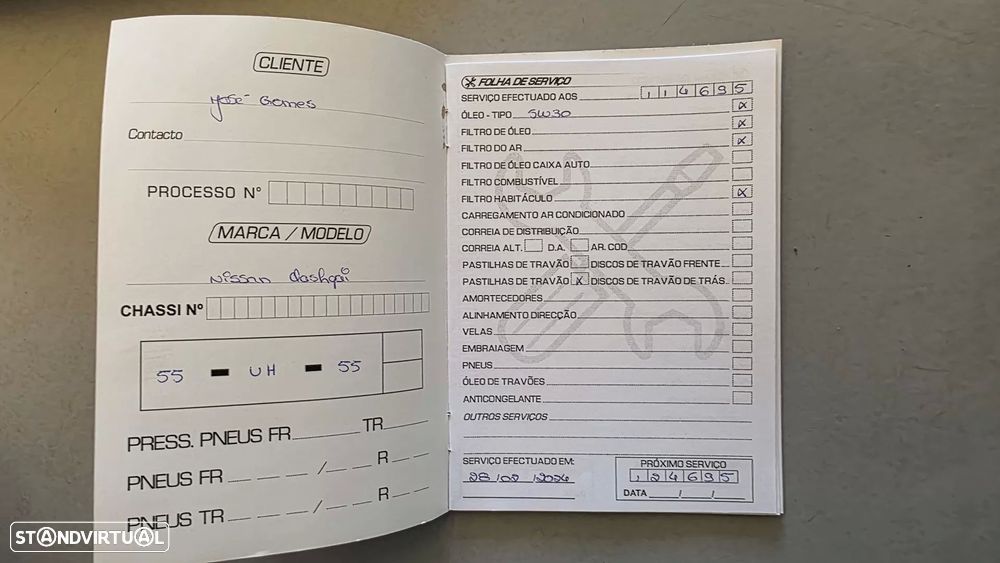 CLIENTE
José Gomes
Contacto
PROCESSO Nº
MARCA / MODELO
Nissan Qashqai
CHASSI Nº
55 - UH - 55
PRESS. PNEUS FR TR
PNEUS FR / R
PNEUS TR / R
FOLHA DE SERVIÇO
SERVIÇO EFECTUADO AOS 114695
ÓLEO - TIPO 5W30 X
FILTRO DE ÓLEO X
FILTRO DO AR X
FILTRO DE ÓLEO CAIXA AUTO
FILTRO COMBUSTÍVEL
FILTRO HABITÁCULO X
CARREGAMENTO AR CONDICIONADO
CORREIA DE DISTRIBUIÇÃO
CORREIA ALT. D.A. AR. COD
PASTILHAS DE TRAVÃO DISCOS DE TRAVÃO FRENTE
PASTILHAS DE TRAVÃO X DISCOS DE TRAVÃO DE TRÁS
AMORTECEDORES
ALINHAMENTO DIRECÇÃO
VELAS
EMBRAIAGEM
PNEUS
ÓLEO DE TRAVÕES
ANTICONGELANTE
OUTROS SERVIÇOS
SERVIÇO EFECTUADO EM:
28/02/2024
PRÓXIMO SERVIÇO
124695
DATA / /
STANDVIRTUAL